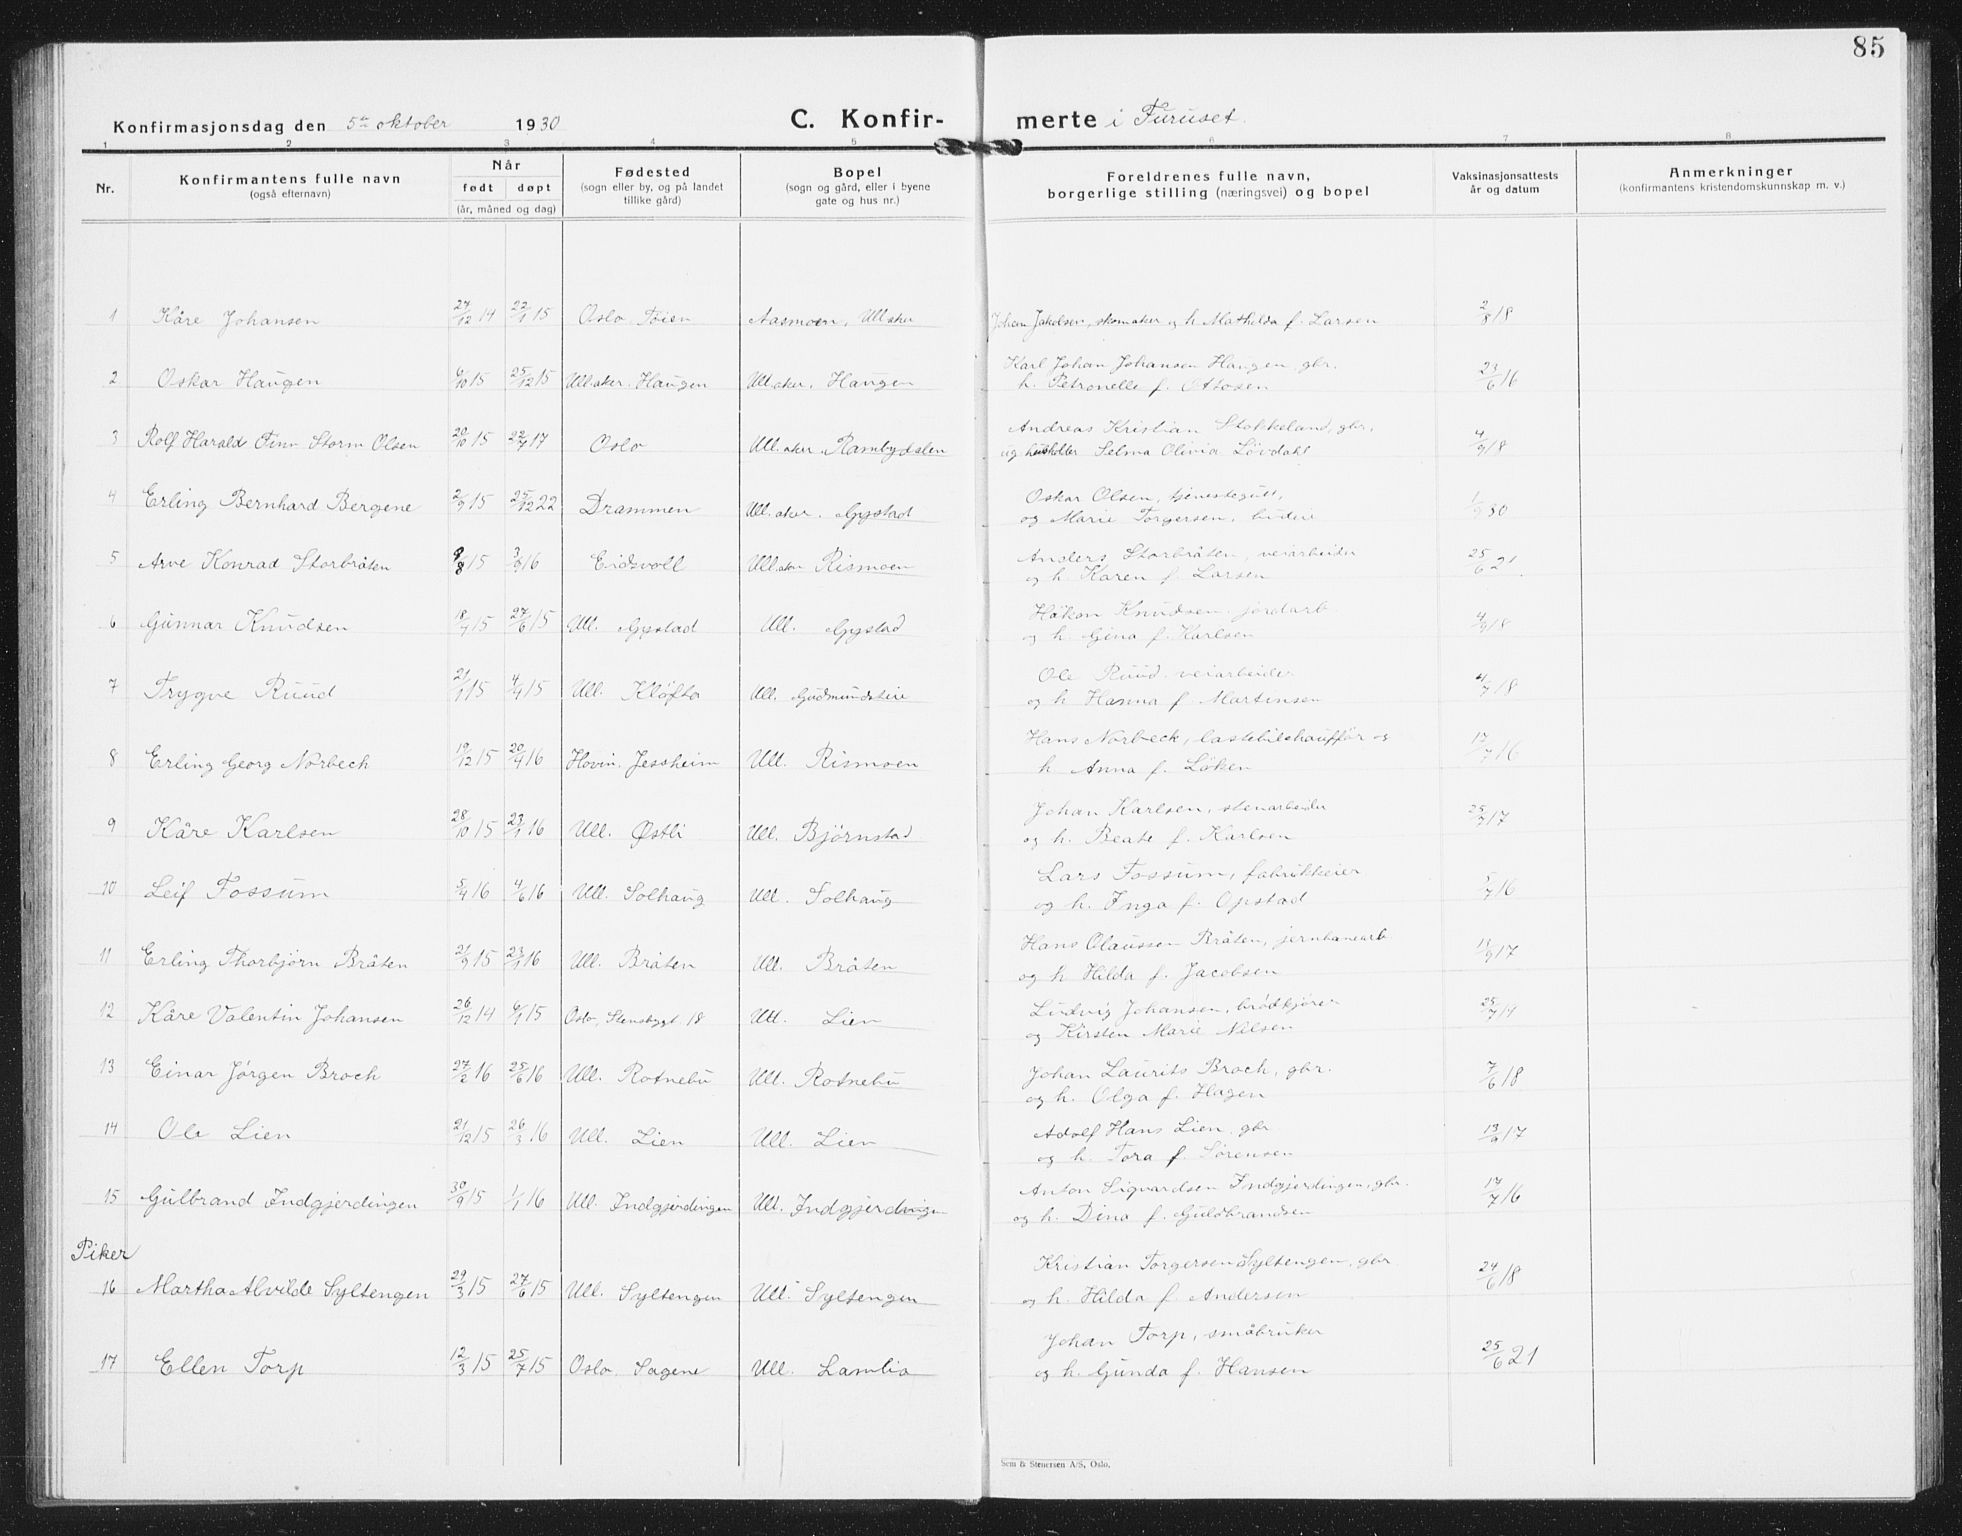 85
Konfirmasjonsdag den 5te oktober 1930 C. Konfirmerte i Furuset.
1 2 3 4 5 6 7 8
Nr. Konfirmantens fulle navn (også efternavn) Når født døpt (år, måned og dag) Fødested (sogn eller by, og på landet tillike gård) Bopel (sogn og gård, eller i byene gate og hus nr.) Foreldrenes fulle navn, borgerlige stilling (næringsvei) og bopel Vaksinasjonsattests år og datum Anmerkninger (konfirmantens kristendomskunnskap m. v.)
1 Kåre Johansen 27/12 14 22/1 15 Oslo, Tøien Aasmoen, Ullaker Johan Jakobsen, skomaker og h. Mathilda f. Larsen 2/8 18
2 Oskar Haugen 6/10 15 25/12 15 Ullaker. Haugen Ullaker, Haugen Karl Johan Johansen Haugen, gbr.
h. Petronelle f. Ottosen 23/6 16
3 Rolf Harald Finn Storm Olsen 20/10 15 22/7 17 Oslo Ullaker, Rambydalen Andreas Kristian Stokkeland, gbr,
og Selma Olivia Lövdahl 4/9 18
4 Erling Bernhard Bergene 2/9 15 25/12 22 Drammen Ullaker. Gystad Oskar Olsen, tjenestegutt,
og Marie Torgersen, budeie 1/9 30
5 Arve Konrad Storbråten 8/8 15 3/9 16 Eidsvoll Ullaker Rismoen Anders Storbråten, veiarbeider
og h. Karen f. Larsen 25/6 21
6 Gunnar Knudsen 18/4 15 27/6 15 Ull. Gystad Ull. Gystad Håkon Knudsen, jordarb.
og h. Gina f. Karlsen 4/9 18
7 Trygve Ruud 21/1 15 4/4 15 Ull. Kløfta Ull. Gudmundseie Ole Ruud, veiarbeider
og h. Hanna f. Martinsen 4/7 18
8 Erling Georg Norbech 19/12 15 20/4 16 Hovin. Jessheim Ull. Rismoen Hans Norbeck, lastebilchauffør og
h. Anna f. Löken 17/7 16
9 Kåre Karlsen 28/10 15 23/1 16 Ull. Østli Ull. Björnstad Johan Karlsen, stenarbeider
og h. Beate f. Karlsen 25/7 17
10 Leif Fossum 5/4 16 4/6 16 Ull. Solhaug Ull. Solhaug Lars Fossum, fabrikkeier
og h. Inga f. Opstad 5/7 16
11 Erling Thorbjørn Bråten 21/9 15 23/1 16 Ull. Bråten Ull. Bråten Hans Olaussen Bråten, jernbanearb.
og h. Hilda f. Jacobsen 11/9 17
12 Kåre Valentin Johansen 26/12 14 6/1 15 Oslo, Stensbygt. 18 Ull. Lien Ludvig Johansen, brødkjører
og Kirsten Marie Nilsen 25/7 14
13 Einar Jørgen Broch 27/2 16 25/6 16 Ull. Rotnebu Ull. Rotnebu Johan Laurits Broch, gbr.
og h. Olga f. Hagen 7/6 18
14 Ole Lien 21/12 15 26/3 16 Ull. Lien Ull. Lien Adolf Hans Lien, gbr
og h. Tora f. Sörensen 13/9 17
15 Gulbrand Indgjerdingen 30/9 15 1/1 16 Ull. Indgjerdingen Ull. Indgjerdingen Anton Sigvardsen Indgjerdingen, gbr.
og h. Dina f. Guldbrandsen 17/7 16
Piker
16 Martha Alvilde Syltengen 29/3 15 27/6 15 Ull. Syltengen Ull. Syltengen Kristian Torgersen Syltengen, gbr
og h. Hilda f. Andersen 24/6 18
17 Ellen Torp 12/3 15 25/7 15 Oslo, Sagene Ull. Lamlia Johan Torp, småbruker
og h. Gunda f. Hansen 25/6 21
Sem & Stenersen A/S, Oslo.